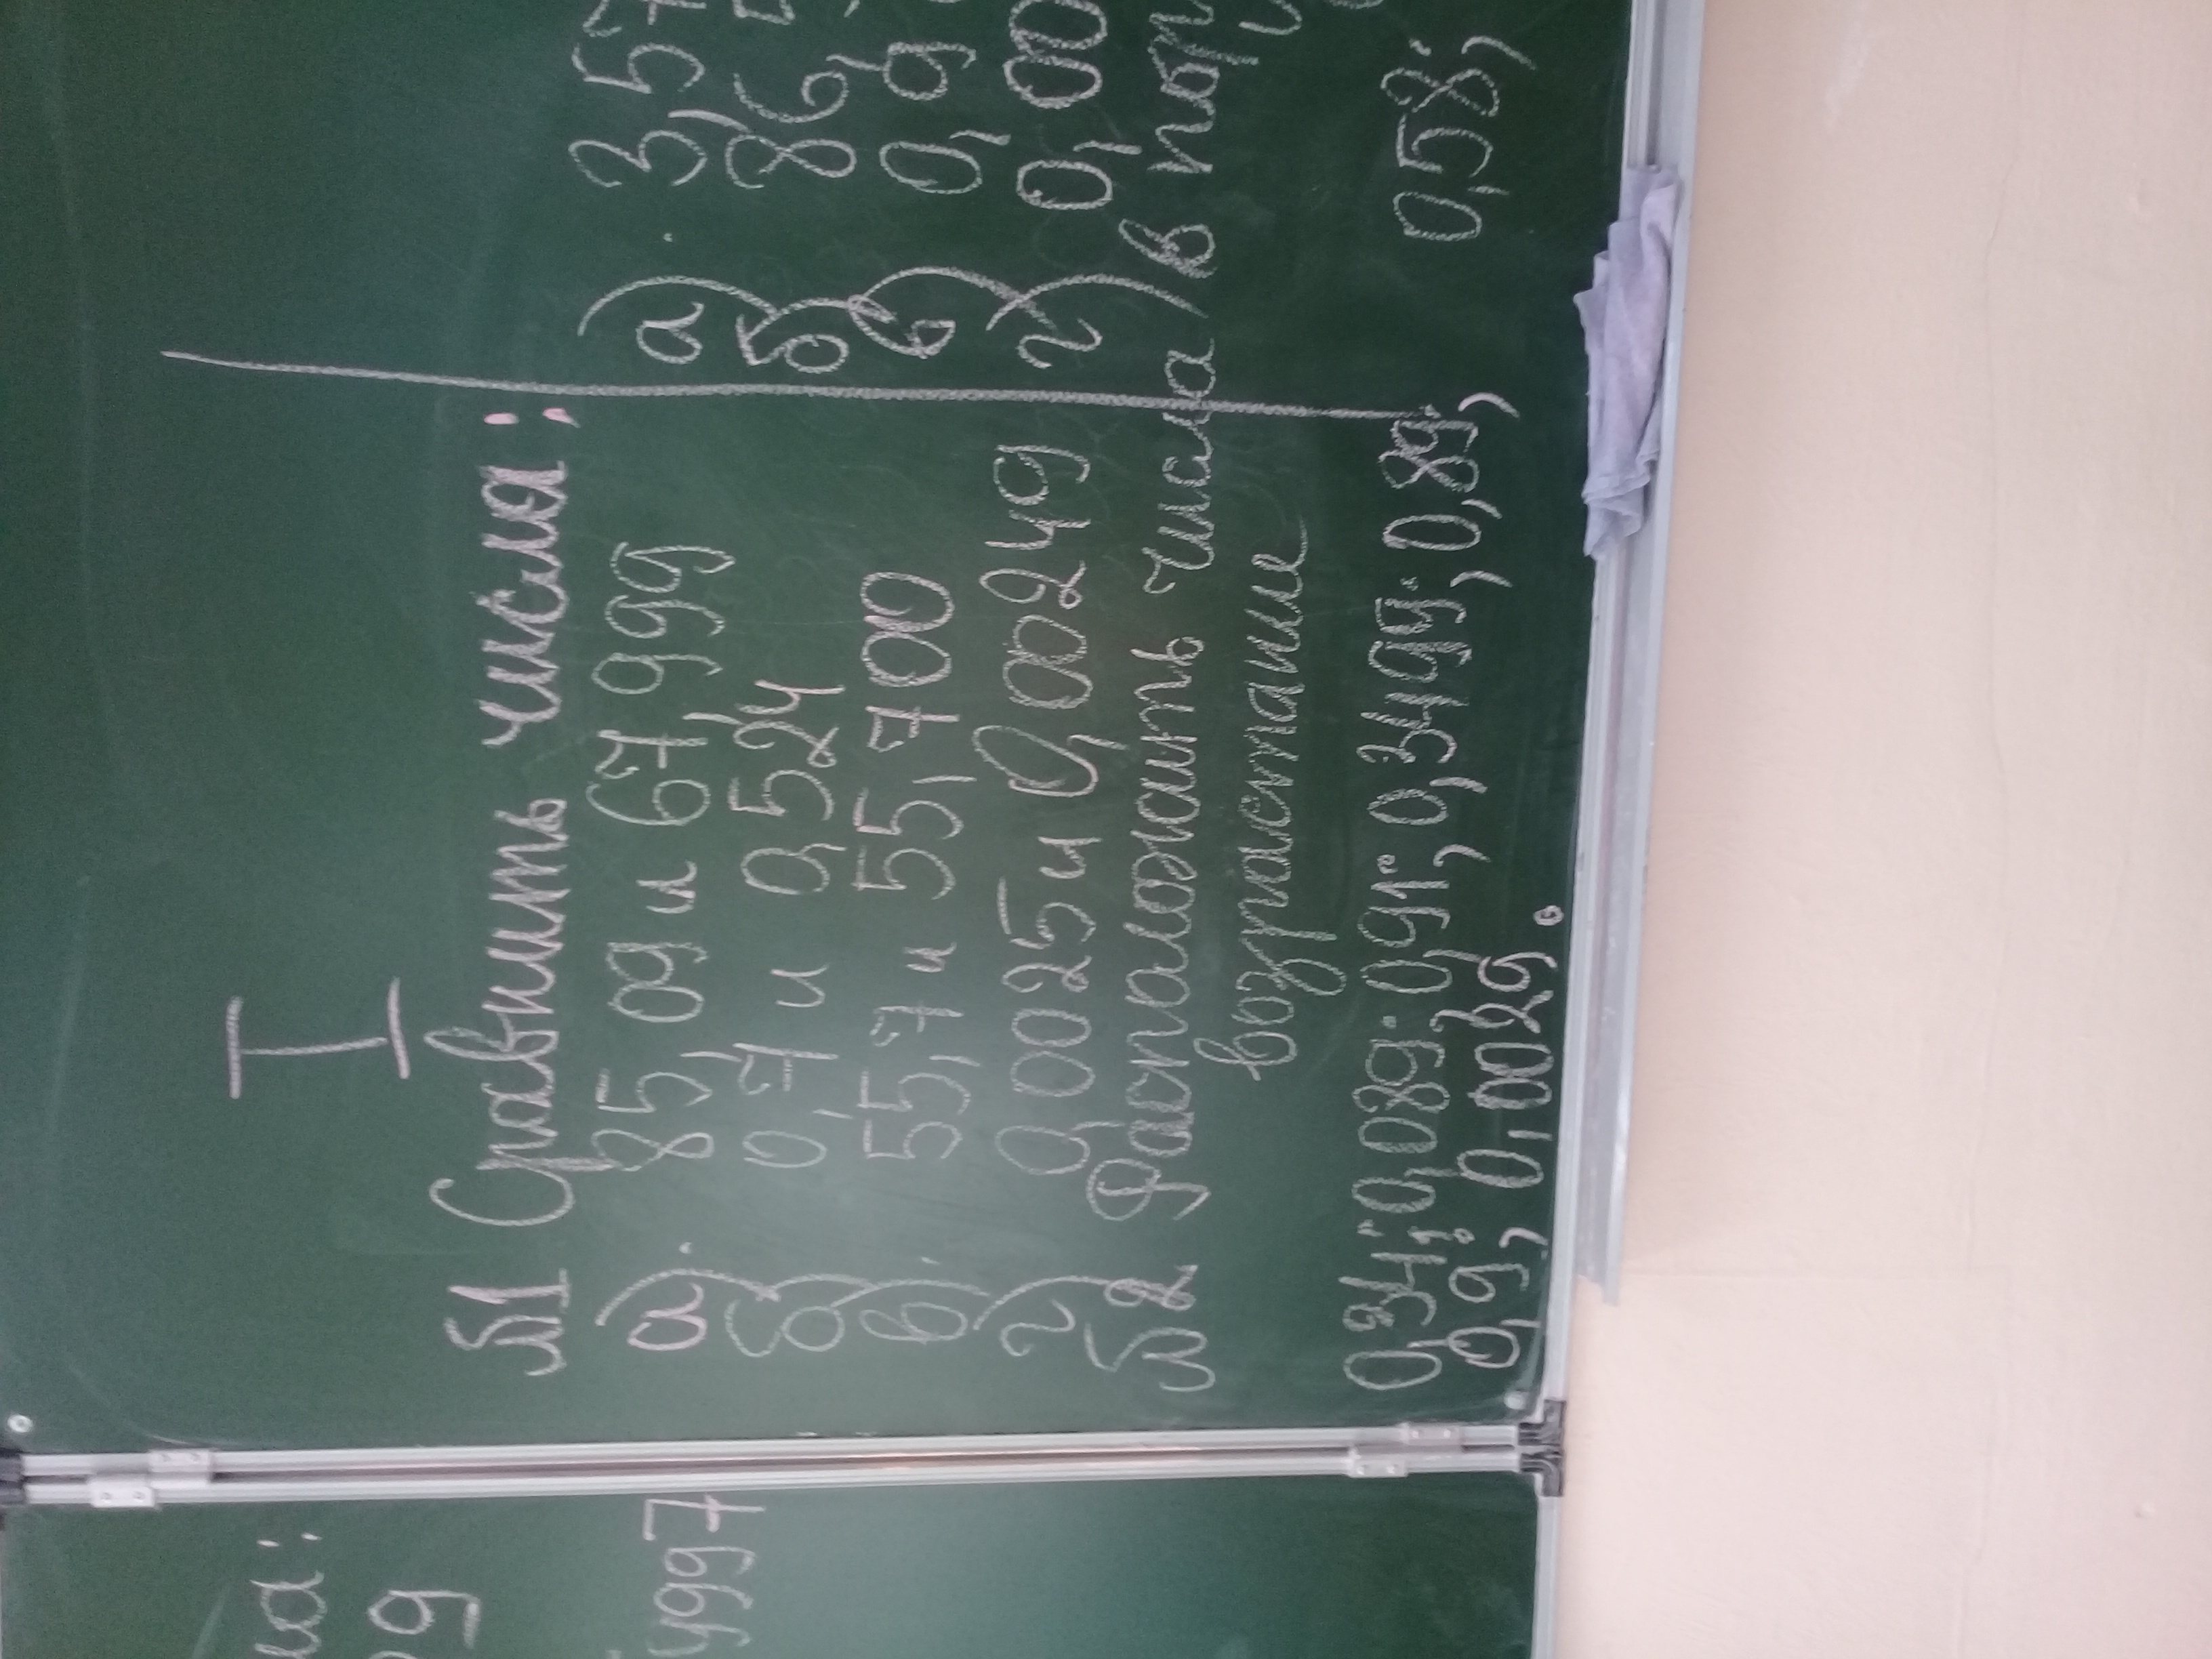 I
№1 Сравнить числа:
а) 85,09 и 67,999
б) 0,7 и 0,524
в) 55,7 и 55,700
г) 0,0025 и 0,00249
№2 Расположить числа в
возрастании
0,34; 0,089; 0,91; 0,3499; 0,89;
0,9; 0,0029.
а) 3,57
б) 86,
в) 0,9
г) 0,00
0,58;